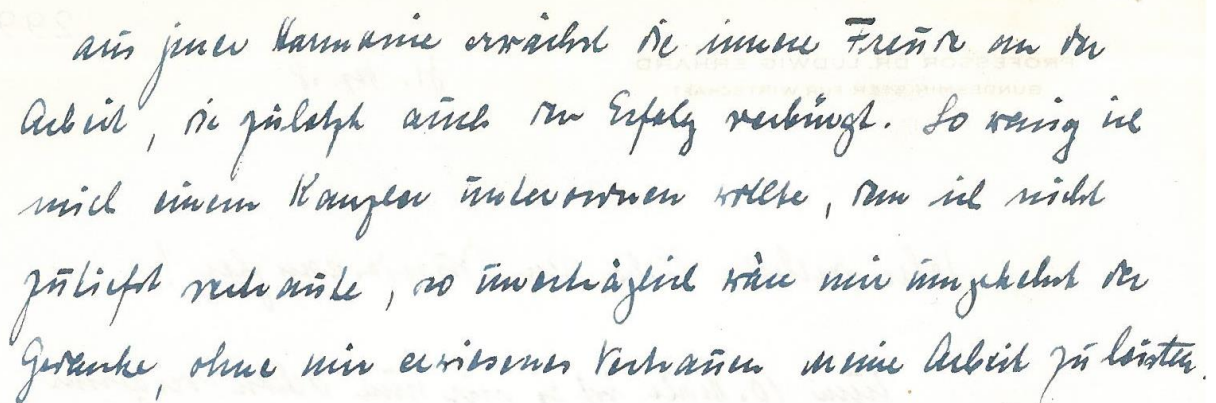 aus jener Harmonie erwächst die innere Freude an der
Arbeit, die zuletzt auch den Erfolg verbürgt. So wenig ich
mich einem Kanzler unterordnen wollte, dem ich nicht
zutiefst vertraute, so unerträglich wäre mir umgekehrt der
Gedanke, ohne mir erwiesenes Vertrauen meine Arbeit zu leisten.